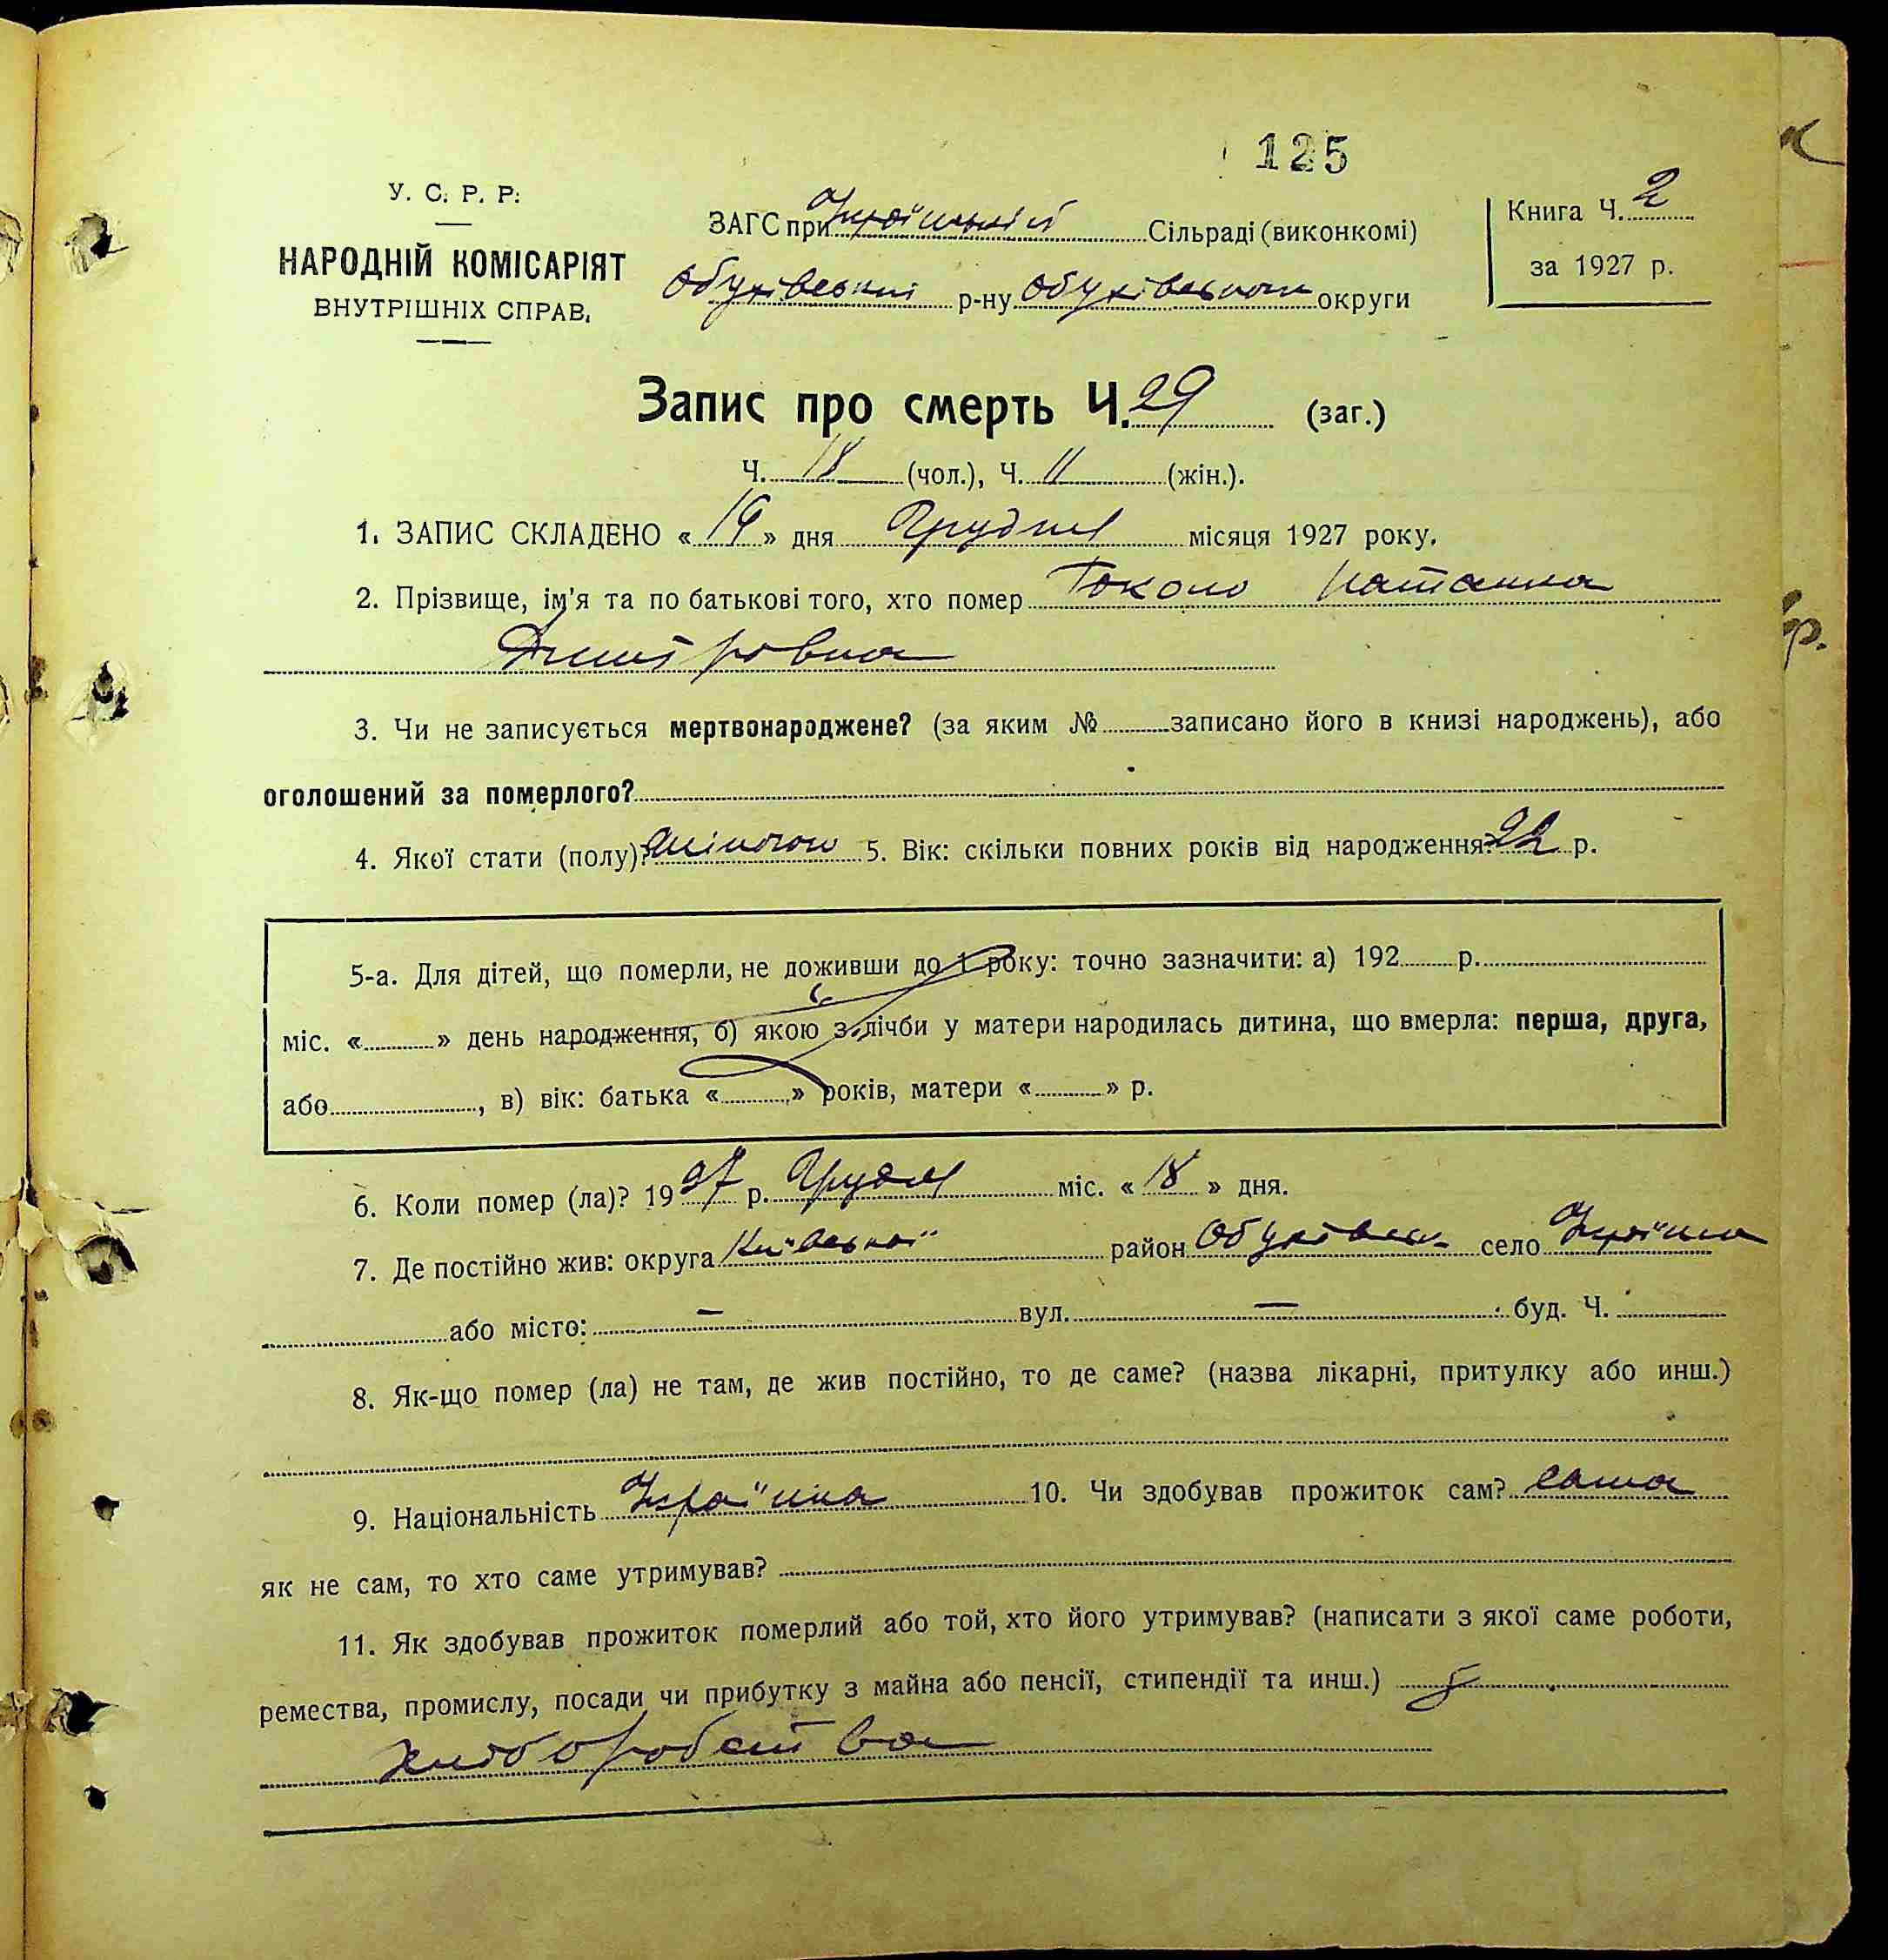 125
У. С. Р. Р.
НАРОДНІЙ КОМІСАРІЯТ
ВНУТРІШНІХ СПРАВ.
ЗАГС при Українській Сільраді (виконкомі)
Обухівський р-ну Обухівської округи
Книга Ч. 2
за 1927 р.
Запис про смерть Ч. 29 (заг.)
Ч. 18 (чол.), Ч. 11 (жін.).
1. ЗАПИС СКЛАДЕНО « 19 » дня Грудня місяця 1927 року.
2. Прізвище, ім'я та по батькові того, хто помер
3. Чи не записується мертвонароджене? (за яким № записано його в книзі народжень), або
оголошений за померлого?
4. Якої стати (полу)? жіночої 5. Вік: скільки повних років від народження? 22 р.
5-а. Для дітей, що померли, не доживши до 1 року: точно зазначити: а) 192 р.
міс. « » день народження, б) якою з лічби у матери народилась дитина, що вмерла: перша, друга,
або , в) вік: батька « » років, матери « » р.
6. Коли помер (ла)? 1927 р. Грудня міс. « 18 » дня.
7. Де постійно жив: округа Київської район Обухівськ село Українка
або місто: — вул. — буд. Ч.
8. Як-що помер (ла) не там, де жив постійно, то де саме? (назва лікарні, притулку або инш.)
9. Національність Українка 10. Чи здобував прожиток сам? сама
як не сам, то хто саме утримував?
11. Як здобував прожиток померлий або той, хто його утримував? (написати з якої саме роботи,
ремества, промислу, посади чи прибутку з майна або пенсії, стипендії та инш.) з
хліборобства